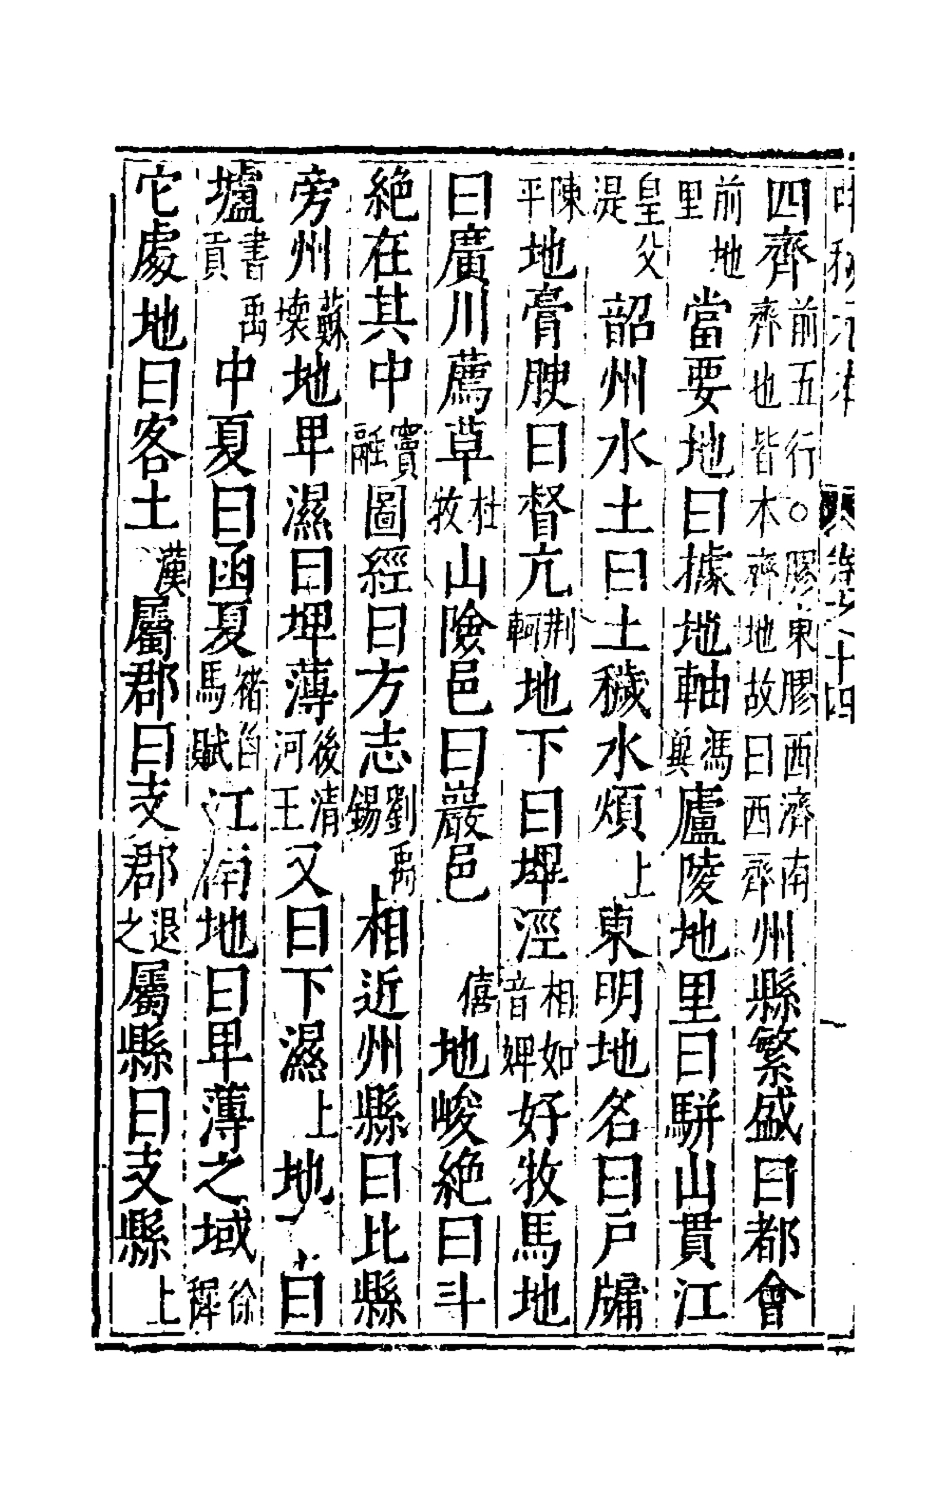 四齊前五行○膠東膠西濟南齊也皆本齊地故曰西齊州縣繁盛曰都會
前地里當要地曰據地軸馮異廬陵地里曰駢山貫江
皇父湜韶州水土曰土穢水煩上東明地名曰戸牖
陳平地膏腴曰督亢荆軻地下曰埤溼相如音婢好牧馬地
曰廣川薦草杜牧山險邑曰巖邑僖地峻絶曰斗
絶在其中竇融圖經曰方志劉禹錫相近州縣曰比縣
旁州蘇壊地卑濕曰埤薄後清河王又曰下濕上地曰
壚書禹貢中夏曰函夏褚白馬賦江南地曰卑薄之域徐穉
它處地曰客土漢屬郡曰支郡退之屬縣曰支縣上